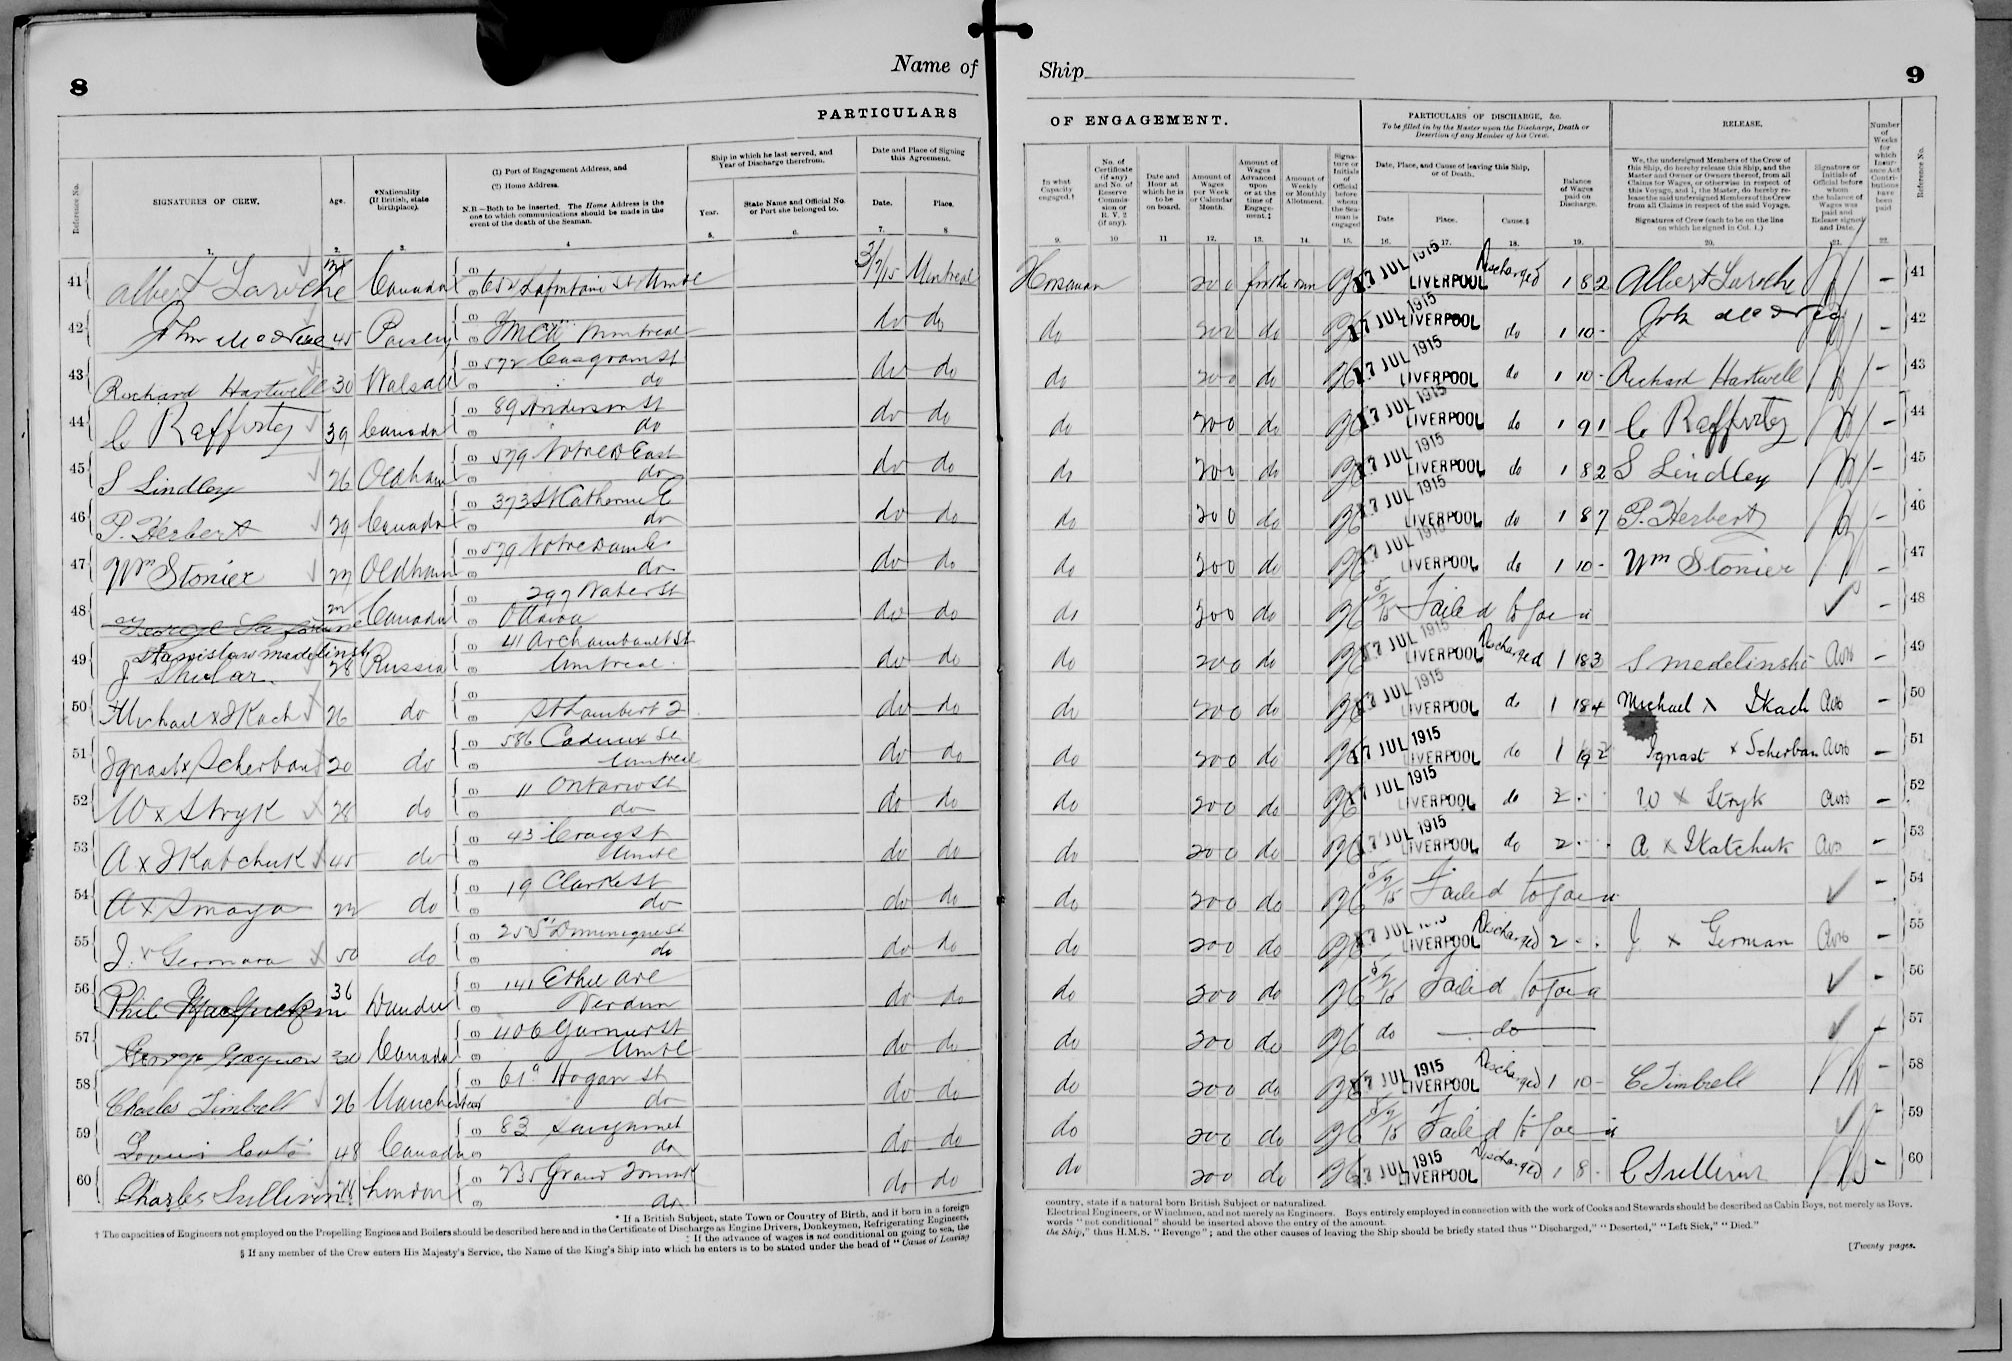 8
Name of
PARTICULARS
Reference No.
SIGNATURES OF CREW.
Age.
*Nationality (If British, state birthplace).
(1) Port of Engagement Address, and
(2) Home Address.
N.B.—Both to be inserted. The Home Address is the one to which communications should be made in the event of the death of the Seaman.
Ship in which he last served, and Year of Discharge therefrom.
Year.
State Name and Official No. or Port she belonged to.
Date and Place of Signing this Agreement.
Date.
Place.
1. 2. 3. 4 5. 6. 7. 8
41 Albert Laroche Canada (1) (2) 652 Lafontaine St 3/7/15 Montreal
42 45 Paisley (1) (2) YMCA Montreal do do
43 Richard Hartwell 30 Walsall (1) 572 Casgrain St (2) do do do
44 C Rafferty 39 Canada (1) 89 Anderson St (2) do do do
45 S Lindley 26 Oldham (1) 579 Notre D East (2) do do do
46 P. Herbert 29 Canada (1) 373 St Catherine E (2) do do do
47 Wm Stonier 27 Oldham (1) 579 Notre Dame E (2) do do do
48 George Canada (1) 297 Water St (2) Ottawa do do
49 Stanislaw Medelinski J 28 Russia (1) 41 Archambault St (2) Montreal do do
50 Michael x Tkach 26 do (1) (2) St Lambert do do
51 Ignast x Scherban 20 do (1) 586 Cadieux St (2) Montreal do do
52 W x Stryk 28 do (1) 11 Ontario St (2) do do do
53 A x Tkatchuk 45 do (1) 43 Craig St (2) do do
54 A x Smaya 22 do (1) 19 Clarke St (2) do do do
55 J. x German 50 do (1) St Dominique St (2) do do do
56 Phil 36 Dundee (1) 141 Ethel Ave (2) Verdun do do
57 George Gagnon Canada (1) 406 Garnier St (2) do do
58 Charles Timbrell 26 Manchester (1) 61a Hogan St (2) do do do
59 Louis 48 Canada (1) 83 Sanguinet (2) do do do
60 Charles Sullivan London (1) 235 Grand Trunk (2) do do do
* If a British Subject, state Town or Country of Birth, and if born in a foreign
† The capacities of Engineers not employed on the Propelling Engines and Boilers should be described here and in the Certificate of Discharge as Engine Drivers, Donkeymen, Refrigerating Engineers,
‡ If the advance of wages is not conditional on going to sea, the
§ If any member of the Crew enters His Majesty's Service, the Name of the King's Ship into which he enters is to be stated under the head of "Cause of Leaving
Ship
9
OF ENGAGEMENT.
PARTICULARS OF DISCHARGE, &c.
To be filled in by the Master upon the Discharge, Death or Desertion of any Member of his Crew.
RELEASE.
In what Capacity engaged.†
No. of Certificate (if any) and No. of Reserve Commission or R. V. 2 (if any).
Date and Hour at which he is to be on board.
Amount of Wages per Week or Calendar Month.
Amount of Wages Advanced upon or at the time of Engagement.‡
Amount of Weekly or Monthly Allotment.
Signature or Initials of Official before whom the Seaman is engaged
Date, Place, and Cause of leaving this Ship, or of Death.
Date
Place.
Cause.§
Balance of Wages paid on Discharge.
We, the undersigned Members of the Crew of this Ship, do hereby release this Ship, and the Master and Owner or Owners thereof, from all Claims for Wages, or otherwise in respect of this Voyage, and I, the Master, do hereby release the said undersigned Members of the Crew from all Claims in respect of the said Voyage.
Signatures of Crew (each to be on the line on which he signed in Col. 1.)
Signature or Initials of Official before whom the balance of Wages was paid and Release signed and Date.
Number of Weeks for which Insurance Act Contributions have been paid
Reference No.
9. 10 11 12. 13. 14. 15. 16. 17. 18. 19. 20. 21. 22.
Horseman 200 for the run 17 JUL 1915 LIVERPOOL Discharged 1 8 2 Albert Laroche – 41
do 200 do 17 JUL 1915 LIVERPOOL do 1 10 – John – 42
do 200 do 17 JUL 1915 LIVERPOOL do 1 10 – Richard Hartwell – 43
do 200 do 17 JUL 1915 LIVERPOOL do 1 9 1 C Rafferty – 44
do 200 do 17 JUL 1915 LIVERPOOL do 1 8 2 S Lindley – 45
do 200 do 17 JUL 1915 LIVERPOOL do 1 8 7 P. Herbert – 46
do 200 do 17 JUL 1915 LIVERPOOL do 1 10 – Wm Stonier – 47
do 200 do 5/7/15 Failed to Join ✓ – 48
do 200 do 17 JUL 1915 LIVERPOOL Discharged 1 18 3 S Medelinski – 49
do 200 do 17 JUL 1915 LIVERPOOL do 1 18 4 Michael x Tkach – 50
do 200 do 17 JUL 1915 LIVERPOOL do 1 19 2 Ignast x Scherban – 51
do 200 do 17 JUL 1915 LIVERPOOL do 2 W x Stryk – 52
do 200 do 17 JUL 1915 LIVERPOOL do 2 A x Tkatchuk – 53
do 200 do 5/7/15 Failed to Join ✓ – 54
do 200 do 17 JUL 1915 LIVERPOOL Discharged 2 J x German – 55
do 200 do 5/7/15 Failed to Join ✓ – 56
do 200 do do do ✓ 57
do 200 do 17 JUL 1915 LIVERPOOL Discharged 1 10 – C Timbrell – 58
do 200 do 5/7/15 Failed to Join ✓ 59
do 200 do 17 JUL 1915 LIVERPOOL Discharged 1 8 C Sullivan – 60
country, state if a natural born British Subject or naturalized.
Electrical Engineers, or Winchmen, and not merely as Engineers. Boys entirely employed in connection with the work of Cooks and Stewards should be described as Cabin Boys, not merely as Boys.
words "not conditional" should be inserted above the entry of the amount.
the Ship," thus H.M.S. "Revenge"; and the other causes of leaving the Ship should be briefly stated thus "Discharged," "Deserted," "Left Sick," "Died."
[Twenty pages.